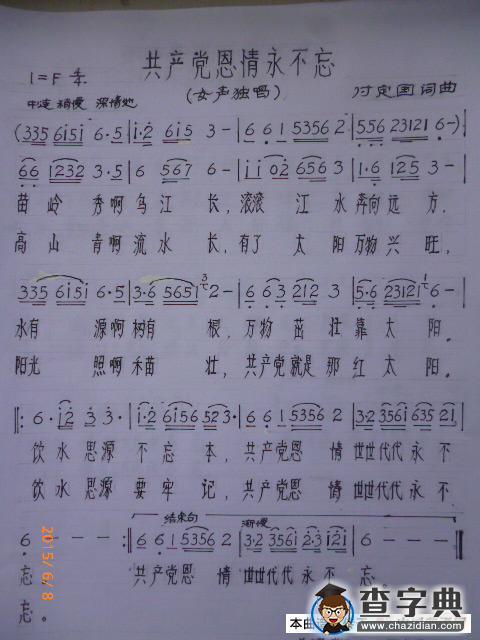 共产党恩情永不忘
1=F 4/4
(女声独唱)
付定国词曲
中速 稍慢 深情地
(335 6i5i 6·5 | i·2 6i5 3 - | 6 6 1 5356 2 | 556 23121 6 -)
66 1232 3·5 | 6 567 6 - | ii 02 656 3 | 1·6 125 3 -
苗岭 秀啊乌江 长，滚滚 江水奔向远方，
高山 青啊流水 长，有了 太阳万物兴旺，
335 6i5i 6·5 | 3·6 5651 2 - | 6 63 212 3 | 5·6 23121 6 -
水有 源啊树有 根，万物 茁壮靠太阳。
阳光 照啊禾苗 壮，共产党就是那红太阳。
6·i2 3 3· | i·2 6i56 523· | 6 6i 5356 2 | 3·2 356i 635 21
饮水思源 不忘 本，共产党恩 情世世代代永不
饮水思源 要牢 记，共产党恩 情世世代代永不
结束句
渐慢
6 - - - :| 6 6 1 5356 2 | 3·2 356i 2·3 i2i | 6 - - -
忘。 共产党恩 情世世代代永不 忘。
忘。
2015/6/8
查字典
www.chazidian.com